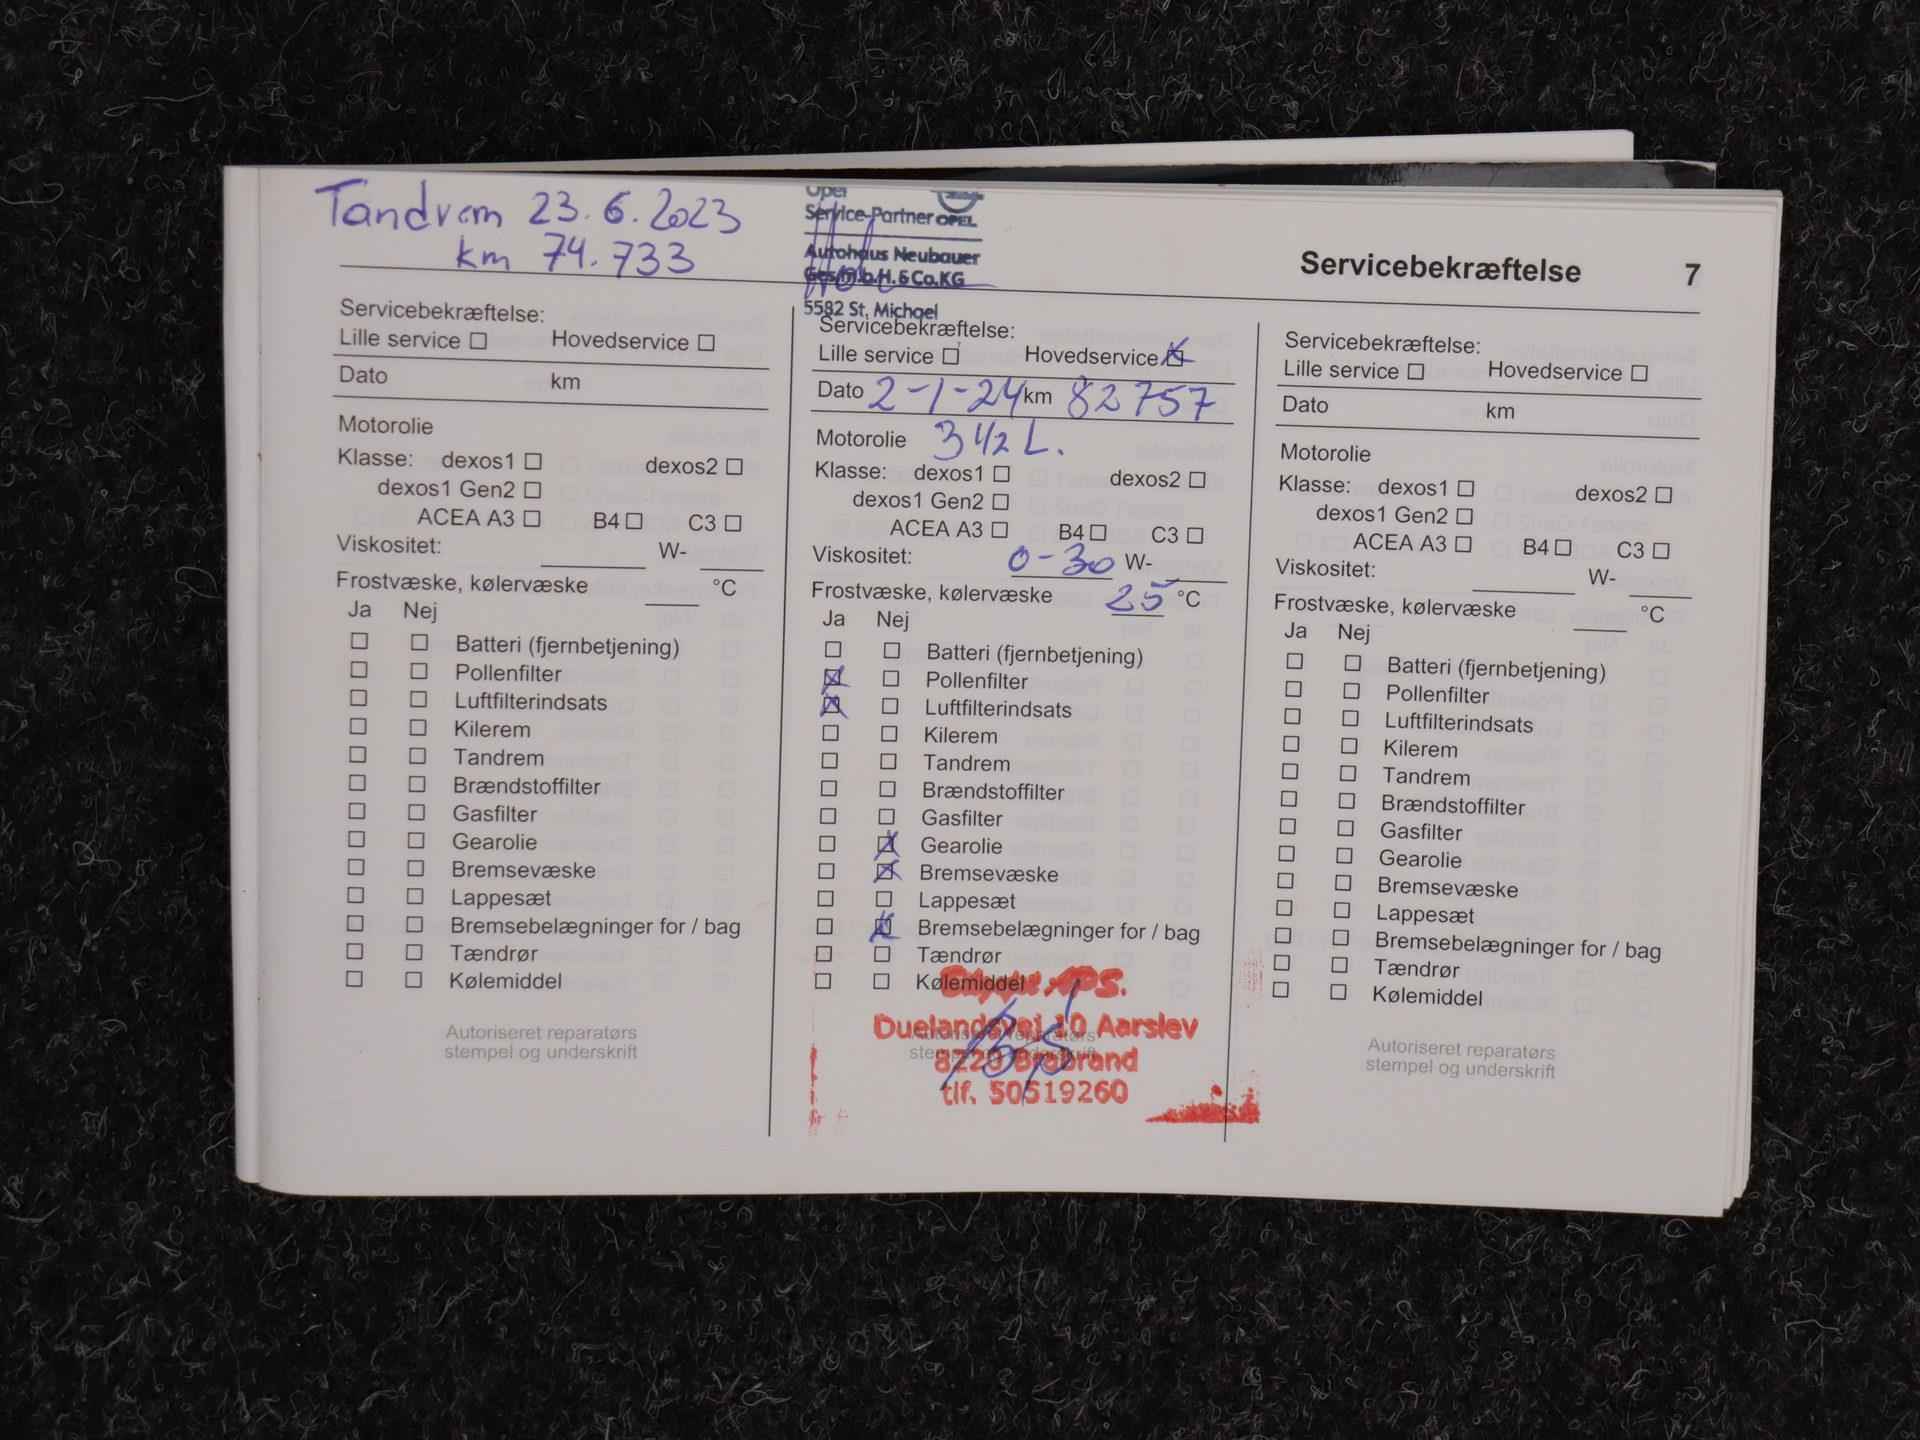 Tandrem 23.6.2023
km 74.733
Opel
Service-Partner OPEL
Autohaus Neubauer
Ges.m.b.H.&Co.KG
5582 St. Michael
Servicebekræftelse 7
Servicebekræftelse:
Lille service ☐ Hovedservice ☐
Dato km
Motorolie
Klasse: dexos1 ☐ dexos2 ☐
dexos1 Gen2 ☐
ACEA A3 ☐ B4 ☐ C3 ☐
Viskositet: W-
Frostvæske, kølervæske °C
Ja Nej
☐ ☐ Batteri (fjernbetjening)
☐ ☐ Pollenfilter
☐ ☐ Luftfilterindsats
☐ ☐ Kilerem
☐ ☐ Tandrem
☐ ☐ Brændstoffilter
☐ ☐ Gasfilter
☐ ☐ Gearolie
☐ ☐ Bremsevæske
☐ ☐ Lappesæt
☐ ☐ Bremsebelægninger for / bag
☐ ☐ Tændrør
☐ ☐ Kølemiddel
Autoriseret reparatørs
stempel og underskrift
Servicebekræftelse:
Lille service ☐ Hovedservice ☒
Dato 2-1-24 km 82757
Motorolie 3 1/2 L.
Klasse: dexos1 ☐ dexos2 ☐
dexos1 Gen2 ☐
ACEA A3 ☐ B4 ☐ C3 ☐
Viskositet: 0-30 W-
Frostvæske, kølervæske 25 °C
Ja Nej
☐ ☐ Batteri (fjernbetjening)
☒ ☐ Pollenfilter
☒ ☐ Luftfilterindsats
☐ ☐ Kilerem
☐ ☐ Tandrem
☐ ☐ Brændstoffilter
☐ ☐ Gasfilter
☐ ☒ Gearolie
☐ ☒ Bremsevæske
☐ ☐ Lappesæt
☐ ☒ Bremsebelægninger for / bag
☐ ☐ Tændrør
☐ ☐ Kølemiddel
APS.
Duelandsvej 10 Aarslev
Autoriseret reparatørs
stempel og underskrift
8220 Brabrand
tlf. 50519260
Servicebekræftelse:
Lille service ☐ Hovedservice ☐
Dato km
Motorolie
Klasse: dexos1 ☐ dexos2 ☐
dexos1 Gen2 ☐
ACEA A3 ☐ B4 ☐ C3 ☐
Viskositet: W-
Frostvæske, kølervæske °C
Ja Nej
☐ ☐ Batteri (fjernbetjening)
☐ ☐ Pollenfilter
☐ ☐ Luftfilterindsats
☐ ☐ Kilerem
☐ ☐ Tandrem
☐ ☐ Brændstoffilter
☐ ☐ Gasfilter
☐ ☐ Gearolie
☐ ☐ Bremsevæske
☐ ☐ Lappesæt
☐ ☐ Bremsebelægninger for / bag
☐ ☐ Tændrør
☐ ☐ Kølemiddel
Autoriseret reparatørs
stempel og underskrift